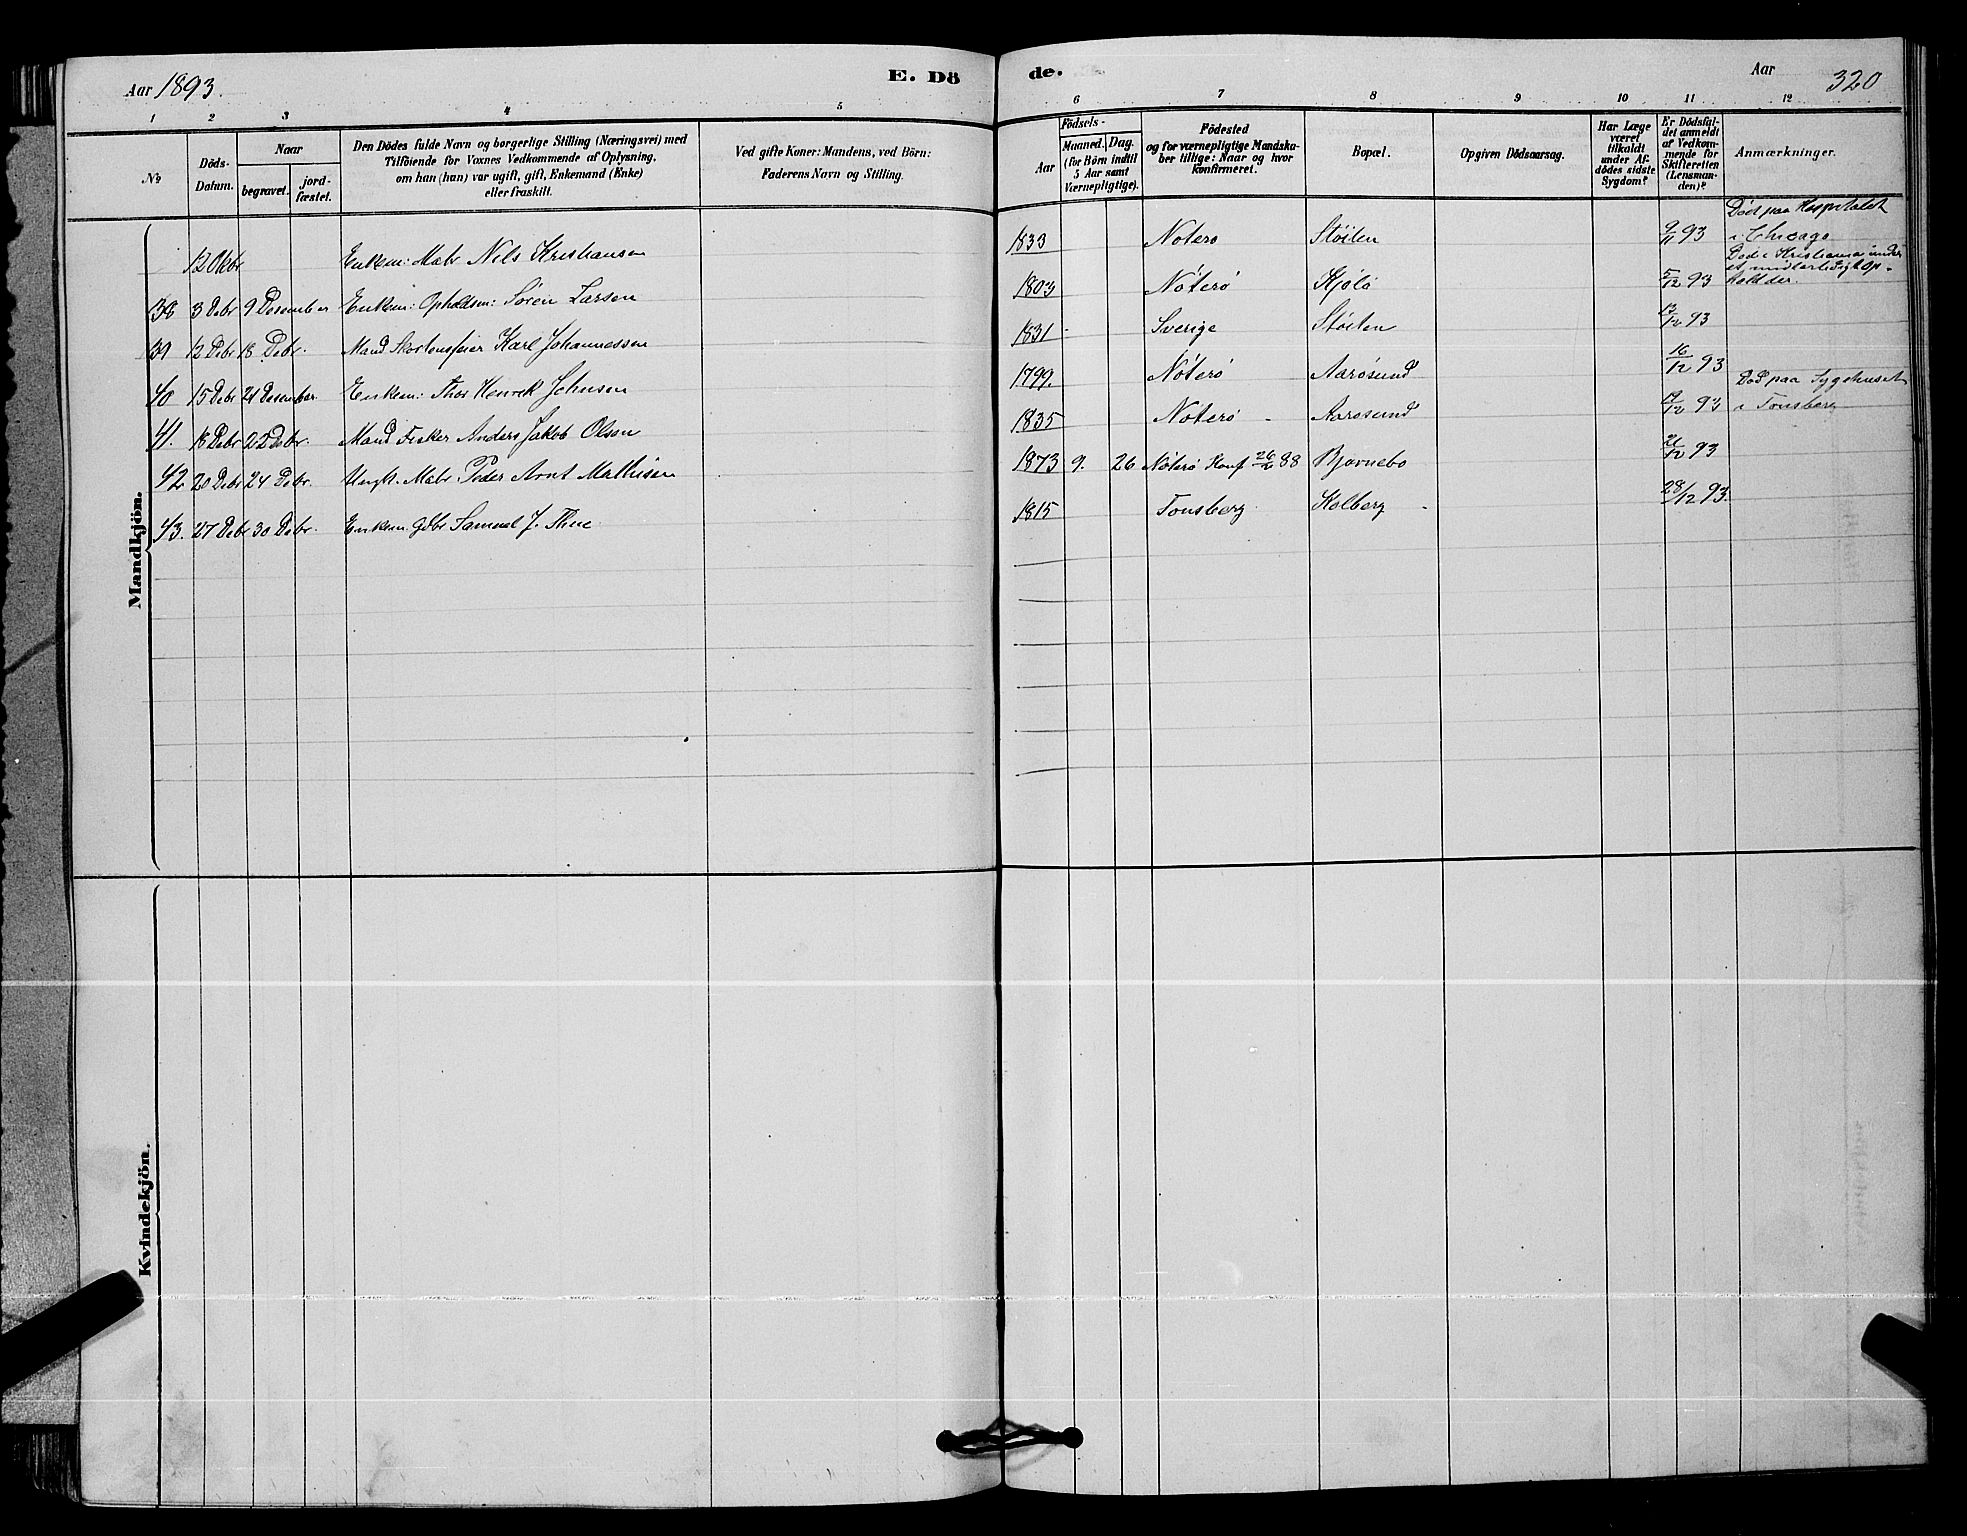 Aar 1893. E. Dö de. Aar 320
1 2 3 4 5 6 7 8 9 10 11 12
No
Döds-Datum.
Naar
begravet.
jord-fæstet.
Den Dödes fulde Navn og borgerlige Stilling (Næringsvei) med
Tilföiende for Voxnes Vedkommende af Oplysning,
om han (hun) var ugift, gift, Enkemand (Enke)
eller fraskilt.
Ved gifte Koner: Mandens, ved Börn:
Faderens Navn og Stilling.
Födsels-
Aar
Maaned. Dag.
(for Börn indtil
5 Aar samt
Værnepligtige).
Födested
og for værnepligtige Mandska-
ber tillige: Naar og hvor
konfirmeret.
Bopæl.
Opgiven Dödsaarsag.
Har Læge
været
tilkaldt
under Af-
dödes sidste
Sygdom?
Er Dödsfal-
det anmeldt
af Vedkom-
mende for
Skifteretten
(Lensman-
den)?
Anmærkninger.
Mandkjön.
12 Oktbr Enkem: Mabr Nils Kristiansen 1833 Nøterø Støiten 9/11 93 Död paa Hospitalet
i Chicago
38 3 Debr 9 Desember Enkem: Opholdsm: Sören Larsen 1803 Nøterø Kjølø 5/12 93 Död i Kristiania under
et midlertidigt Op-
hold der.
39 12 Debr 18 Debr. Mand Skorstensfeier Karl Johannessen 1831 Sverige Støiten 13/12 93
40 15 Debr 21 Desember Enkem: Thor Henrik Johnsen 1799. Nøterø Aarøsund 16/12 93
41. 18 Debr 22 Debr. Mand Fisker Anders Jakob Olsen 1835 Nøterø Aarøsund 19/12 93 Död paa Sygehuset
i Tønsberg
42 20 Debr 24 Debr. Ungk. Mabr Peder Arnt Mathisen 1873 9. 26 Nøterø Konf 88 Bjørnebo 21/12 93
43. 27 Debr 30 Debr. Enkem: Gdbr Samuel J. Thue 1815 Tønsberg Kolberg 28/12 93.
Kvindekjön.